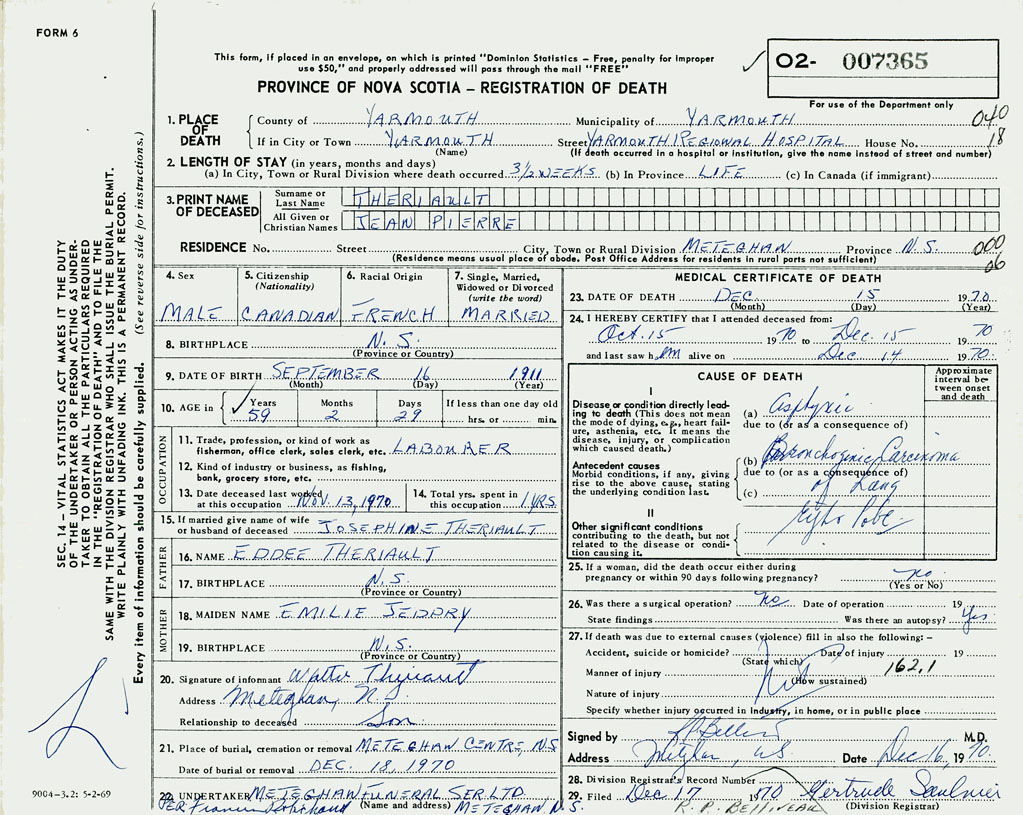 FORM 6
This form, if placed in an envelope, on which is printed "Dominion Statistics – Free, penalty for improper
use $50," and properly addressed will pass through the mail "FREE"
02- 007365
PROVINCE OF NOVA SCOTIA – REGISTRATION OF DEATH
For use of the Department only
1. PLACE OF DEATH
County of YARMOUTH Municipality of YARMOUTH 040
If in City or Town YARMOUTH Street YARMOUTH REGIONAL HOSPITAL House No. 18
(Name) (If death occurred in a hospital or institution, give the name instead of street and number)
2. LENGTH OF STAY (in years, months and days)
(a) In City, Town or Rural Division where death occurred 3½ WEEKS (b) In Province LIFE (c) In Canada (if immigrant)
3. PRINT NAME OF DECEASED
Surname or Last Name THERIAULT
All Given or Christian Names JEAN PIERRE
RESIDENCE No. Street City, Town or Rural Division METEGHAN Province N.S. 000
(Residence means usual place of abode. Post Office Address for residents in rural parts not sufficient) 06
4. Sex
MALE
5. Citizenship (Nationality)
CANADIAN
6. Racial Origin
FRENCH
7. Single, Married, Widowed or Divorced (write the word)
MARRIED
8. BIRTHPLACE N. S.
(Province or Country)
9. DATE OF BIRTH SEPTEMBER 16 1911
(Month) (Day) (Year)
10. AGE in Years 59 Months 2 Days 29 If less than one day old hrs. or min.
OCCUPATION
11. Trade, profession, or kind of work as
fisherman, office clerk, sales clerk, etc. LABOURER
12. Kind of industry or business, as fishing,
bank, grocery store, etc.
13. Date deceased last worked
at this occupation NOV. 13, 1970
14. Total yrs. spent in
this occupation 1 YRS
15. If married give name of wife
or husband of deceased JOSEPHINE THERIAULT
FATHER
16. NAME EDDEE THERIAULT
17. BIRTHPLACE N.S.
(Province or Country)
MOTHER
18. MAIDEN NAME EMILIE JEDDRY
19. BIRTHPLACE N.S.
(Province or Country)
20. Signature of informant Walter Theriault
Address Meteghan, N.S.
Relationship to deceased Son
21. Place of burial, cremation or removal METEGHAN CENTRE, N.S
Date of burial or removal DEC. 18, 1970
22. UNDERTAKER METEGHAN FUNERAL SER. LTD.
PER (Name and address) METEGHAN N.S.
MEDICAL CERTIFICATE OF DEATH
23. DATE OF DEATH DEC. 15 1970
(Month) (Day) (Year)
24. I HEREBY CERTIFY that I attended deceased from:
Oct. 15 1970 to Dec. 15 1970
and last saw him alive on Dec 14 1970
CAUSE OF DEATH
Approximate interval between onset and death
I
Disease or condition directly leading to death (This does not mean
the mode of dying, e.g., heart failure, asthenia, etc. It means the
disease, injury, or complication
which caused death.)
(a)
due to (or as a consequence of)
Antecedent causes
Morbid conditions, if any, giving
rise to the above cause, stating
the underlying condition last.
(b) Bronchogenic Carcinoma
due to (or as a consequence of)
(c) of Lung
II
Other significant conditions
contributing to the death, but not
related to the disease or condition causing it.
Right Lobe
25. If a woman, did the death occur either during
pregnancy or within 90 days following pregnancy? no
(Yes or No)
26. Was there a surgical operation? no Date of operation 19
State findings Was there an autopsy? yes
27. If death was due to external causes (violence) fill in also the following: –
Accident, suicide or homicide? Date of injury 19
(State which)
Manner of injury 162.1
(How sustained)
Nature of injury
Specify whether injury occurred in Industry, in home, or in public place
Signed by M.D.
Address Date Dec 16, 1970
28. Division Registrar's Record Number
29. Filed Dec 17 1970 Gertrude Saulnier
R. P. BELLIVEAU (Division Registrar)
SEC. 14 – VITAL STATISTICS ACT MAKES IT THE DUTY
OF THE UNDERTAKER OR PERSON ACTING AS UNDERTAKER TO OBTAIN ALL THE PARTICULARS REQUIRED
IN THE "REGISTRATION OF DEATH" AND TO FILE THE
SAME WITH THE DIVISION REGISTRAR WHO SHALL ISSUE THE BURIAL PERMIT.
WRITE PLAINLY WITH UNFADING INK. THIS IS A PERMANENT RECORD.
Every item of information should be carefully supplied. (See reverse side for instructions.)
9004-3.2: 5-2-69